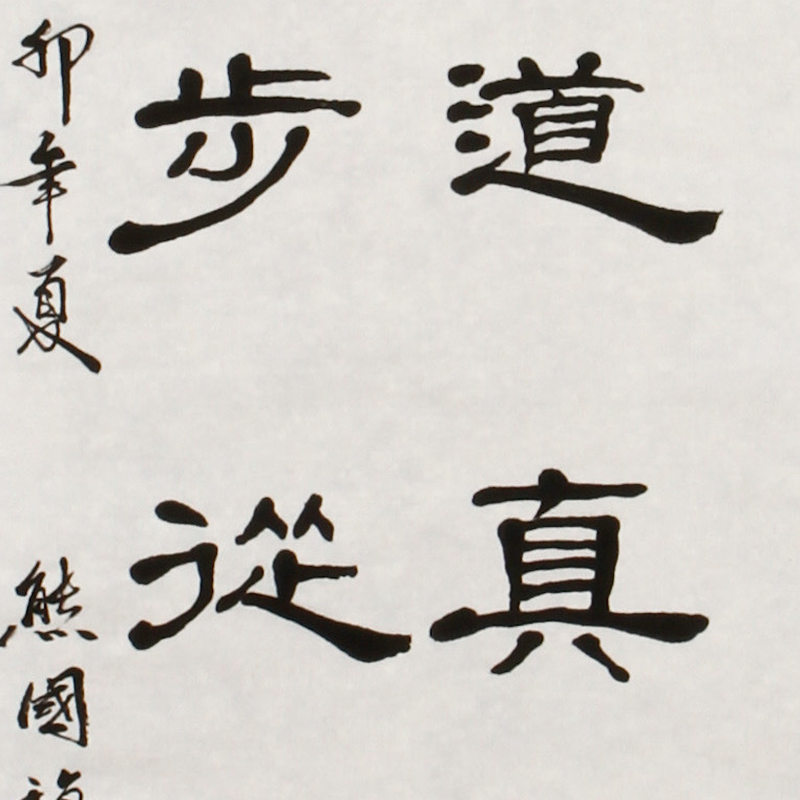 道真
步從
卯年夏 熊國